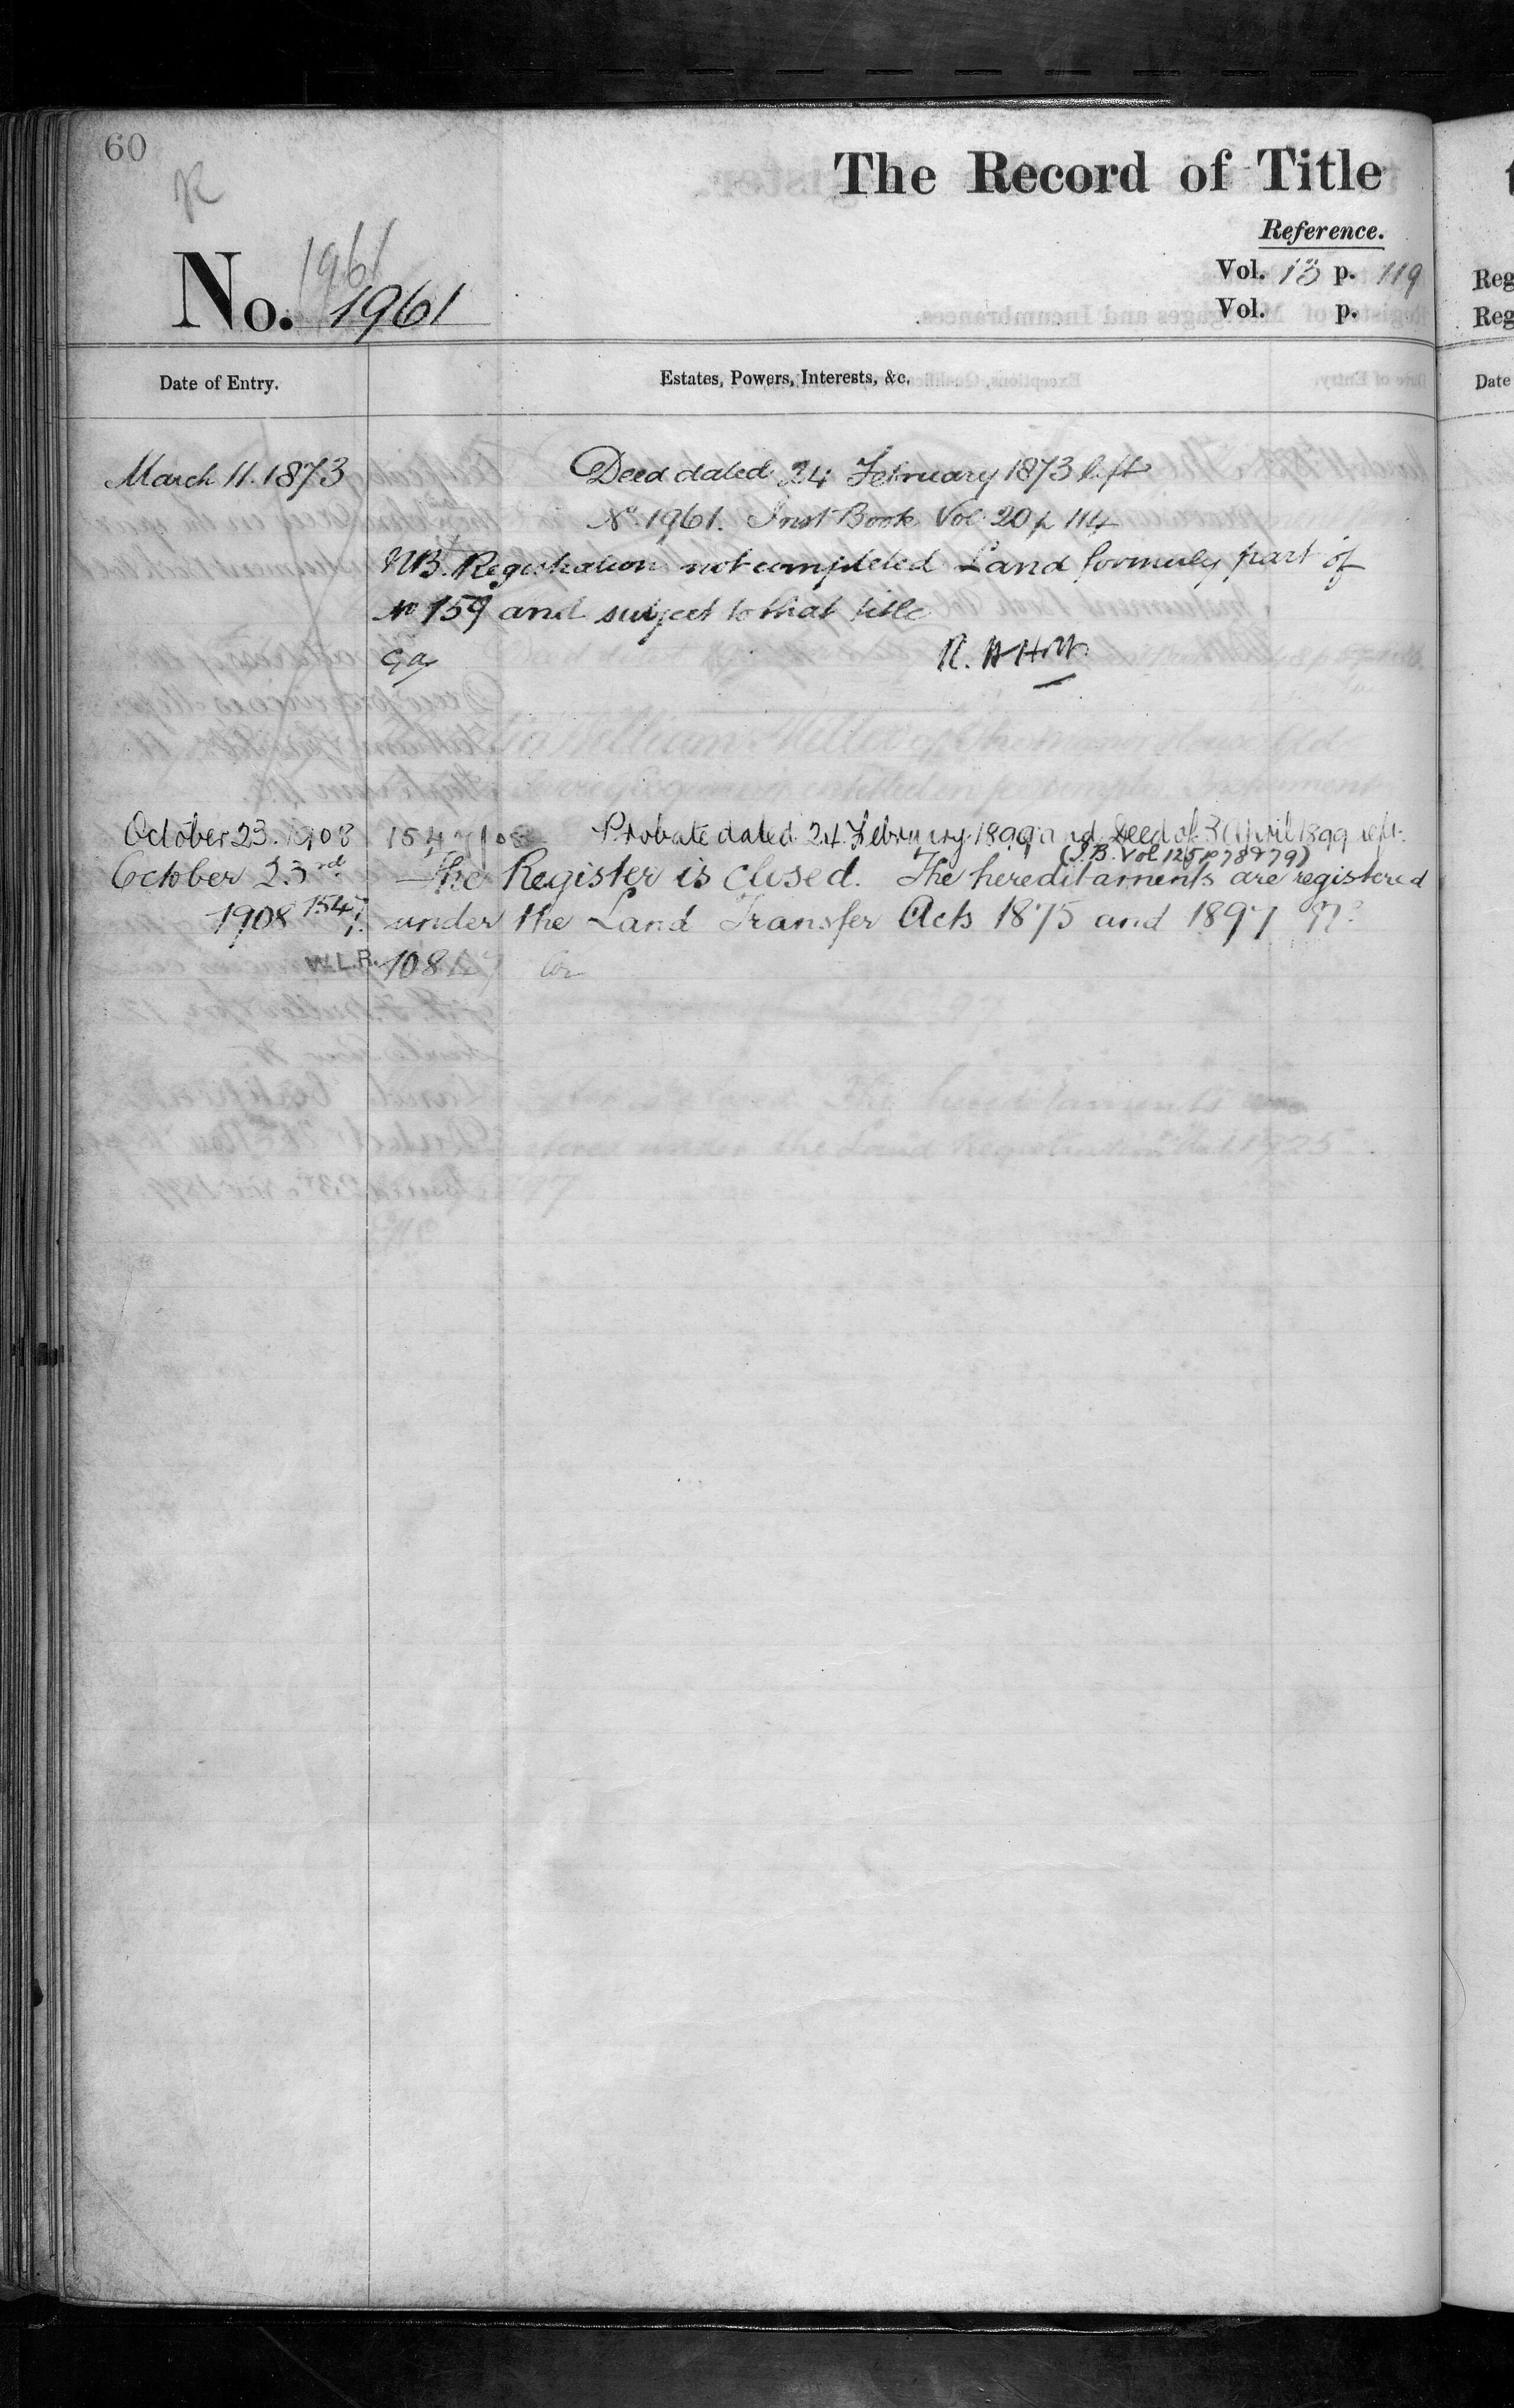 60
R
The Record of Title
Reference.
1961
No. 1961
Vol. 13 p. 119
Vol. p.
Reg
Reg
Date of Entry.
Estates, Powers, Interests, &c.
Date
March 11. 1873
Deed dated 24 February 1873 left
No. 1961. Inst Book Vol 20 p 114
NB. Registration not completed Land formerly part of
No 159 and subject to that title
R. H Holt
October 23. 1908 1547/08 Probate dated 24 February 1899 and Deed of 3 April 1899 left.
(I.B. Vol 125 p 78 & 79)
October 23rd The Register is closed. The hereditaments are registered
1908 1547 under the Land Transfer Acts 1875 and 1897 No.
W.L.R.